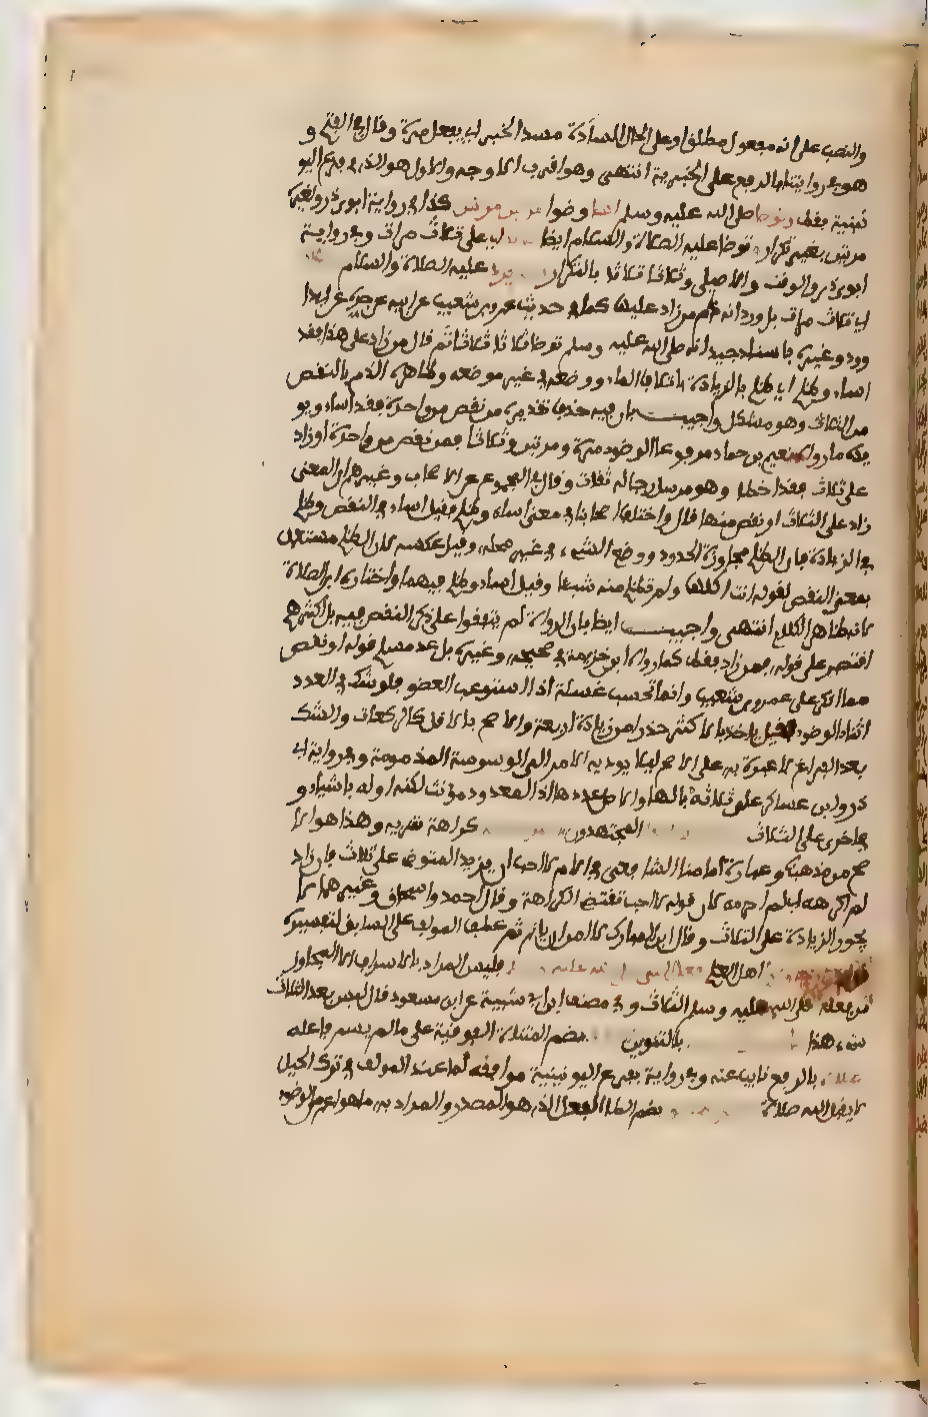 والنصب على انه مفعول مطلق او على الحال السادة مسد الخبر اي يفعل مرة وقال في الفتح و
هو في روايتنا بالرفع على الخبرية انتهى وهو اقرب الاوجه والاول هو الذي في فرع اليو
نينية فقط وتوضا صلى الله عليه وسلم ايضا وضوا مرتين مرتين كذا في رواية ابوي ذر ولغيره
مرتين بغير تكرار توضا عليه الصلاة والسلام ايضا اي على ثلاث مرات وفي رواية
ابوي ذر والوقت والاصيلي وثلاثا ثلاثا بالتكرار عليه الصلاة والسلام
اي ثلاث مرات بل ورد انه ذم من زاد عليها كما في حديث عمرو بن شعيب عن ابيه عن جده عن ابي دا
وود وغيره باسناد جيد انه صلى الله عليه وسلم توضا ثلاثا ثلاثا ثم قال من زاد على هذا فقد
اساء وظلم اي ظلم بالزيادة باتلاف الماء ووضعه في غير موضعه وظاهره الذم بالنقص
من الثلاث وهو مشكل واجيب بان فيه حذفا تقديره من نقص من واحدة فقد اساء ويو
يده ما رواه نعيم بن حماد مرفوعا الوضوء مرة ومرتين وثلاثا فمن نقص من واحدة او زاد
على ثلاث فقد اخطا وهو مرسل رجاله ثقات وقال في المجموع عن الاصحاب وغيرهم ان المعنى
زاد على الثلاث او نقص منها قال واختلف اصحابنا في معنى اساء وظلم فقيل اساء في النقص وظلم
في الزيادة فان الظلم مجاوزة الحدود ووضع الشيء في غير محله وقيل عكسه لان الظلم مستعمل
بمعنى النقص لقوله اتت اكلها ولم تظلم منه شيئا وقيل اساء وظلم فيهما واختاره ابن الصلاح
لانه ظاهر الكلام انتهى واجيب ايضا بان الرواة لم يتفقوا على ذكر النقص فيه بل اكثرهم
اقتصر على قوله فمن زاد فقط كما رواه ابن خزيمة في صحيحه وغيره بل عد مسلم قوله او نقص
مما انكر على عمرو بن شعيب وانما تحسب غسلة اذا استوعب العضو فلو شك في العدد
اثناء الوضوء فقيل ياخذ بالاكثر حذرا من زيادة اربعة والاصح بالاقل كالركعات والشك
بعد الفراغ لا عبرة به على الاصح ليلا يوديه الامر الى الوسوسة المذمومة وفي رواية ابي
ذر وابن عساكر على ثلاثة بالهاء والاصل عدمها اذ المعدود مؤنث لكنه اوله باشياء و
في اخرى على الثلاث المجتهدون كراهة تنزيه وهذا هو الا
صح من مذهبنا وعبارة امامنا الشافعي في الام لا احب ان يزيد المتوضي على ثلاث فان زاد
لم اكرهه اي لم احرمه لان قوله لا احب تقتضي الكراهة وقال احمد واسحاق وغيرهما لا
يجوز الزيادة على الثلاث وقال ابن المبارك لا امن ان ياثم ثم عطف المولف على السابق لتفسيره
اهل العلم فليس المراد بالاسراف الا المجاوز
عن فعله صلى الله عليه وسلم الثلاث وفي مصنف ابن ابي شيبة عن ابن مسعود قال ليس بعد الثلاث
شيء هذا بالتنوين بضم المثناة الفوقية على ما لم يسم فاعله
بالرفع نايب عنه وفي رواية بفرع اليونينية موافقه لما عند المولف في ترك الحيل
لا يقبل الله صلاة بضم الطاء الفعل الذي هو المصدر والمراد به ما هو اعم من الوضوء